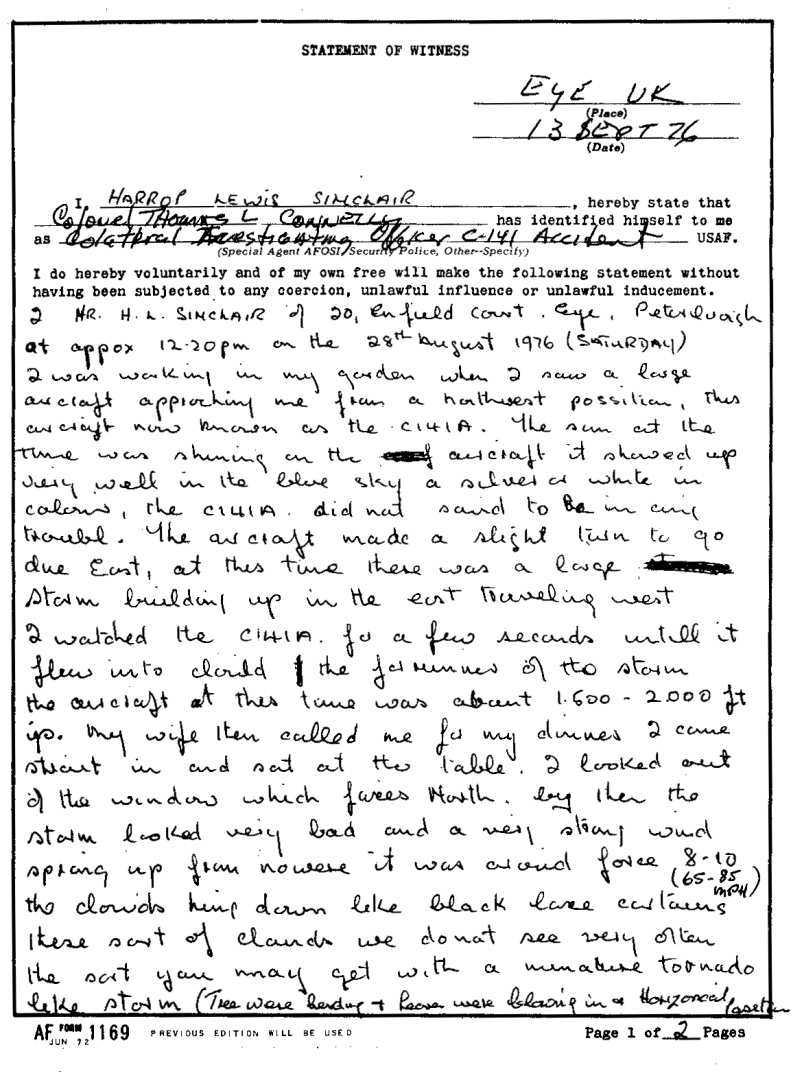 STATEMENT OF WITNESS
EYE UK
(Place)
13 SEPT 76
(Date)
I, HARROP LEWIS SINCLAIR, hereby state that
Colonel THOMAS L CONNELLY has identified himself to me
as Colateral Investigating Officer C-141 Accident USAF.
(Special Agent AFOSI, Security Police, Other--Specify)
I do hereby voluntarily and of my own free will make the following statement without
having been subjected to any coercion, unlawful influence or unlawful inducement.
I MR. H. L. SINCLAIR of 20, Enfield Court. Eye, Peterborough
at appox 12.20pm on the 28th August 1976 (SATURDAY)
I was working in my garden when I saw a large
aircraft approching me from a northwest possition, this
aircraft now known as the C141A. The sun at the
time was shining on the aircraft it showed up
very well in the blue sky a silver or white in
colour, the C141A. did not sound to be in any
troubl. The aircraft made a slight turn to go
due East, at this time there was a large
storm building up in the east traveling west
I watched the C141A. for a few seconds untill it
flew into clould the forrunner of the storm
the aircraft at this time was about 1.500 - 2.000 ft
up. my wife then called me for my dinner I came
straut in and sat at the table. I looked out
of the window which faces North. by then the
storm looked very bad and a very strong wind
sprang up from nowere it was around force 8-10
(65-85
MPH)
the clouds hung down like black lace curtains
these sort of clouds we do not see very often
the sort you may get with a minature toornado
like storm (Tree were bending + leaves were blowing in a Horizoncal
AF FORM 1169
JUN 72
PREVIOUS EDITION WILL BE USED
Page 1 of 2 Pages